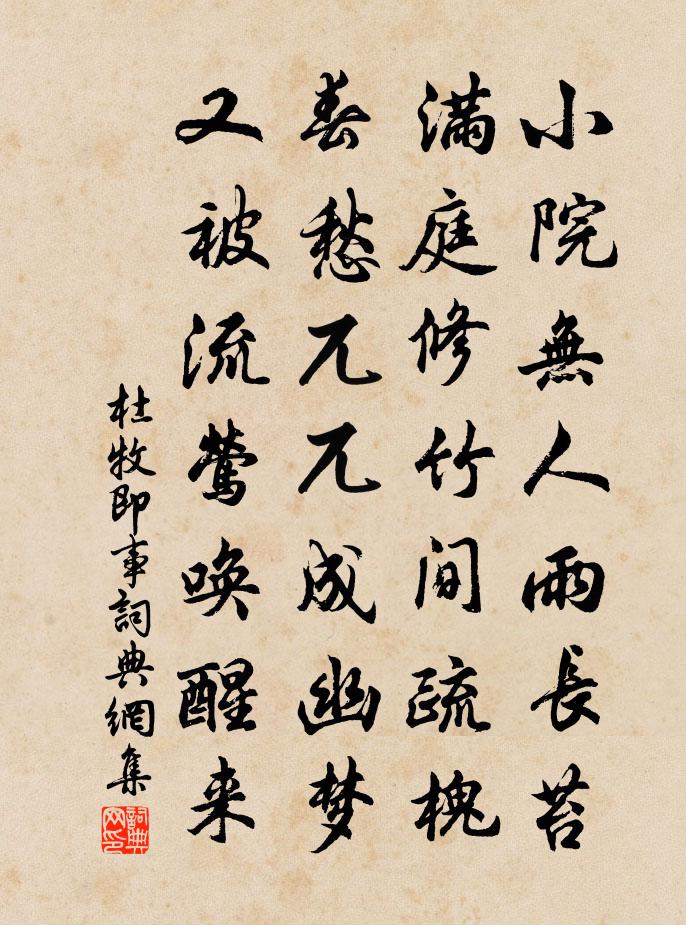 小院無人雨長苔
滿庭修竹間疏槐
春愁兀兀成幽梦
又被流鶯唤醒来
杜牧即事詞典網集
詞典网印